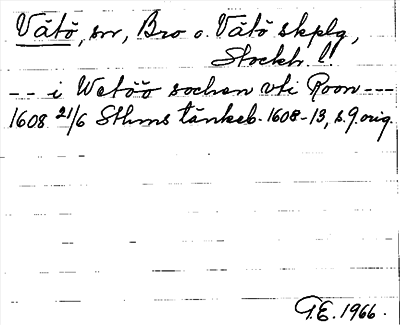 Vätö, sn, Bro o. Vätö skplg,
Stockh. l.
-- i Wetöö sochen vti Roon ---
1608 21/6 Sthms tänkeb. 1608-13, s. 9. orig.
G.E. 1966.